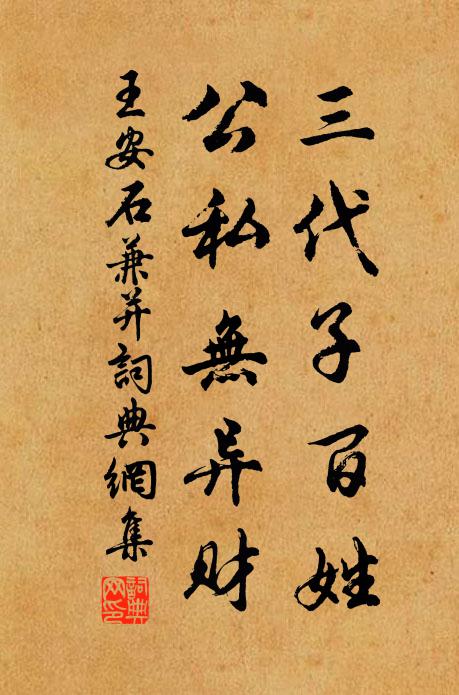 三代子百姓
公私無异财
王安石兼并詞典網集
詞典网印